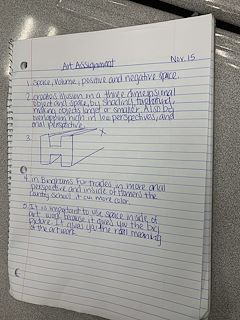 Art Assignment Nov. 15
1. Space, Volume, positive and negative space.
2. creates illusion in a three dimensional
object and space, by shading,
making objects larger or smaller. Also by
overlapping, high in low perspectives, and
arial perspective.
3. X
4. in Binghams Fur trades, in more arial
perspective and inside of Homers the
country school, it was more color.
5. It is important to use space inside of
art work because it gives you the big
picture. It gives you the real meaning
of the artwork.